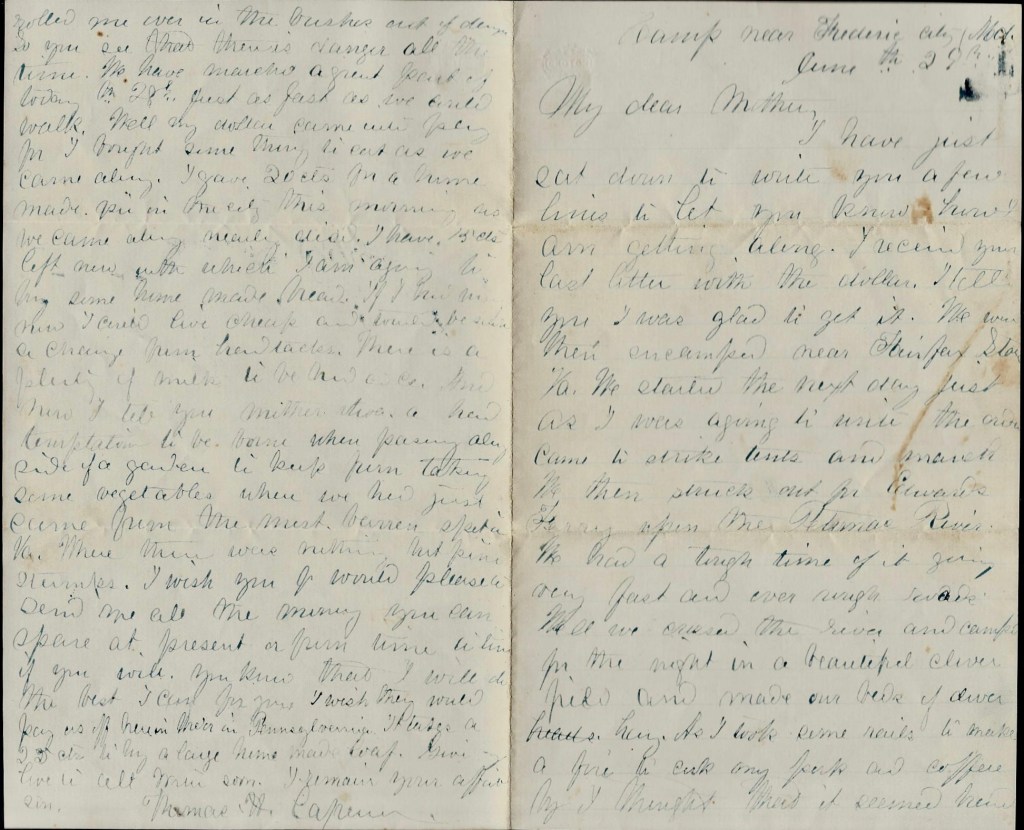 Camp near Frederic city, Md.
June th 27th
My dear Mother,
I have just
sat down to write you a few
lines to let you know how I
am getting along. I receivd your
last letter with the dollar. I tell
you I was glad to get it. We were
then encamped near Fairfax Sta
Va. We started the next day just
as I was agoing to write the order
came to strike tents and march
We then struck out for Edwards
Ferry upon the Potomac River.
We had a tough time of it going
very fast and over rough roads
Well we crossed the river and campt
for the night in a beautiful clover
field and made our beds of clover
hay. As I took some rails to make
a fire to cook my pork and coffee
by I thought that it seemed
rolled me over in the bushes out of danger
So you see that there is danger all the
time. We have marchd a great part of
today th 28th just as fast as we could
walk. Well my dollar came into play
for I bought some thing to eat as we
came along. I gave 20cts for a home
made pie in the city this morning as
we came along nearly dise. I have 15cts
left now with which I am agoing to
buy some home made bread. If I had
now I could live cheap and
a change from hardtacks. There is a
plenty of milk to be had
now I tell you mother a hard
temptation to be borne when passing along
side of a garden to keep from taking
some vegetables when we had just
come from the most barren spot in
Va. Where there was nothing but pine
stumps. I wish you would please to
send me all the money you can
spare at present or from time to time
if you will. you know that I will do
the best I can for you I wish they would
pay us off here in Pennsylvania. It takes a
25cts to buy a large home made loaf. Give my
love to all your son. I remain your affec
son.
Thomas H.